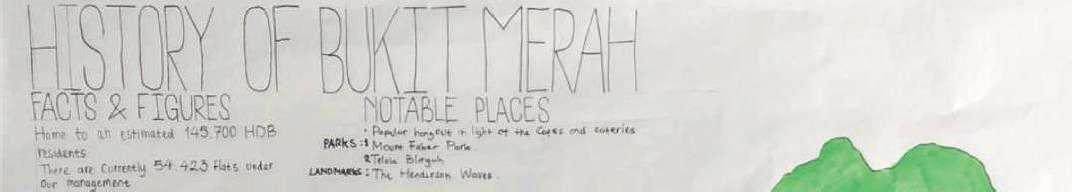 HISTORY OF BUKIT MERAH
FACTS & FIGURES
Home to an estimated 145.700 HDB
residents
There are currently 54.423 flats under
our management
NOTABLE PLACES
• Popular hangout in light of the Cafes and eateries
PARKS : 1 Mount Faber Park.
2 Telok Blangah
LANDMARKS : The Henderson Waves.